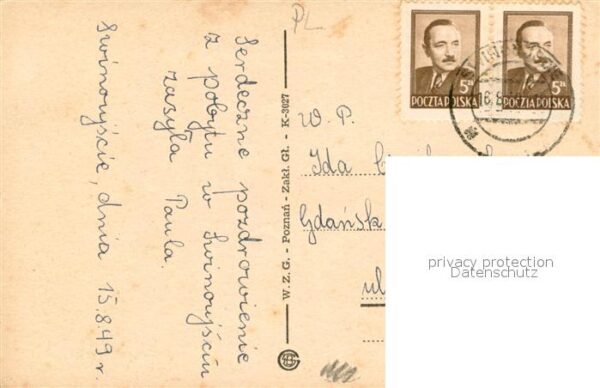 Swinoujście, dnia 15.8.49 r.
Serdeczne pozdrowienie
z pobytu w Swinoujściu
zasyła Paula.
W. Z. G. - Poznań - Zakł. Gł. - K-3027
PL
5 zł
POCZTA POLSKA
5 zł
POCZTA POLSKA
W. P.
Ida
Gdańsk
ul
privacy protection
Datenschutz